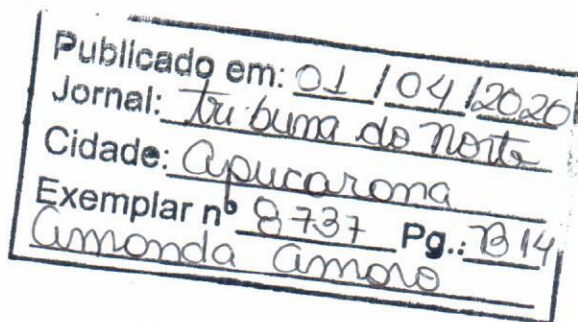 Publicado em: 01/04/2020
Jornal: tribuna do norte
Cidade: Apucarana
Exemplar nº 8737 Pg.: B14
Amanda Amaro